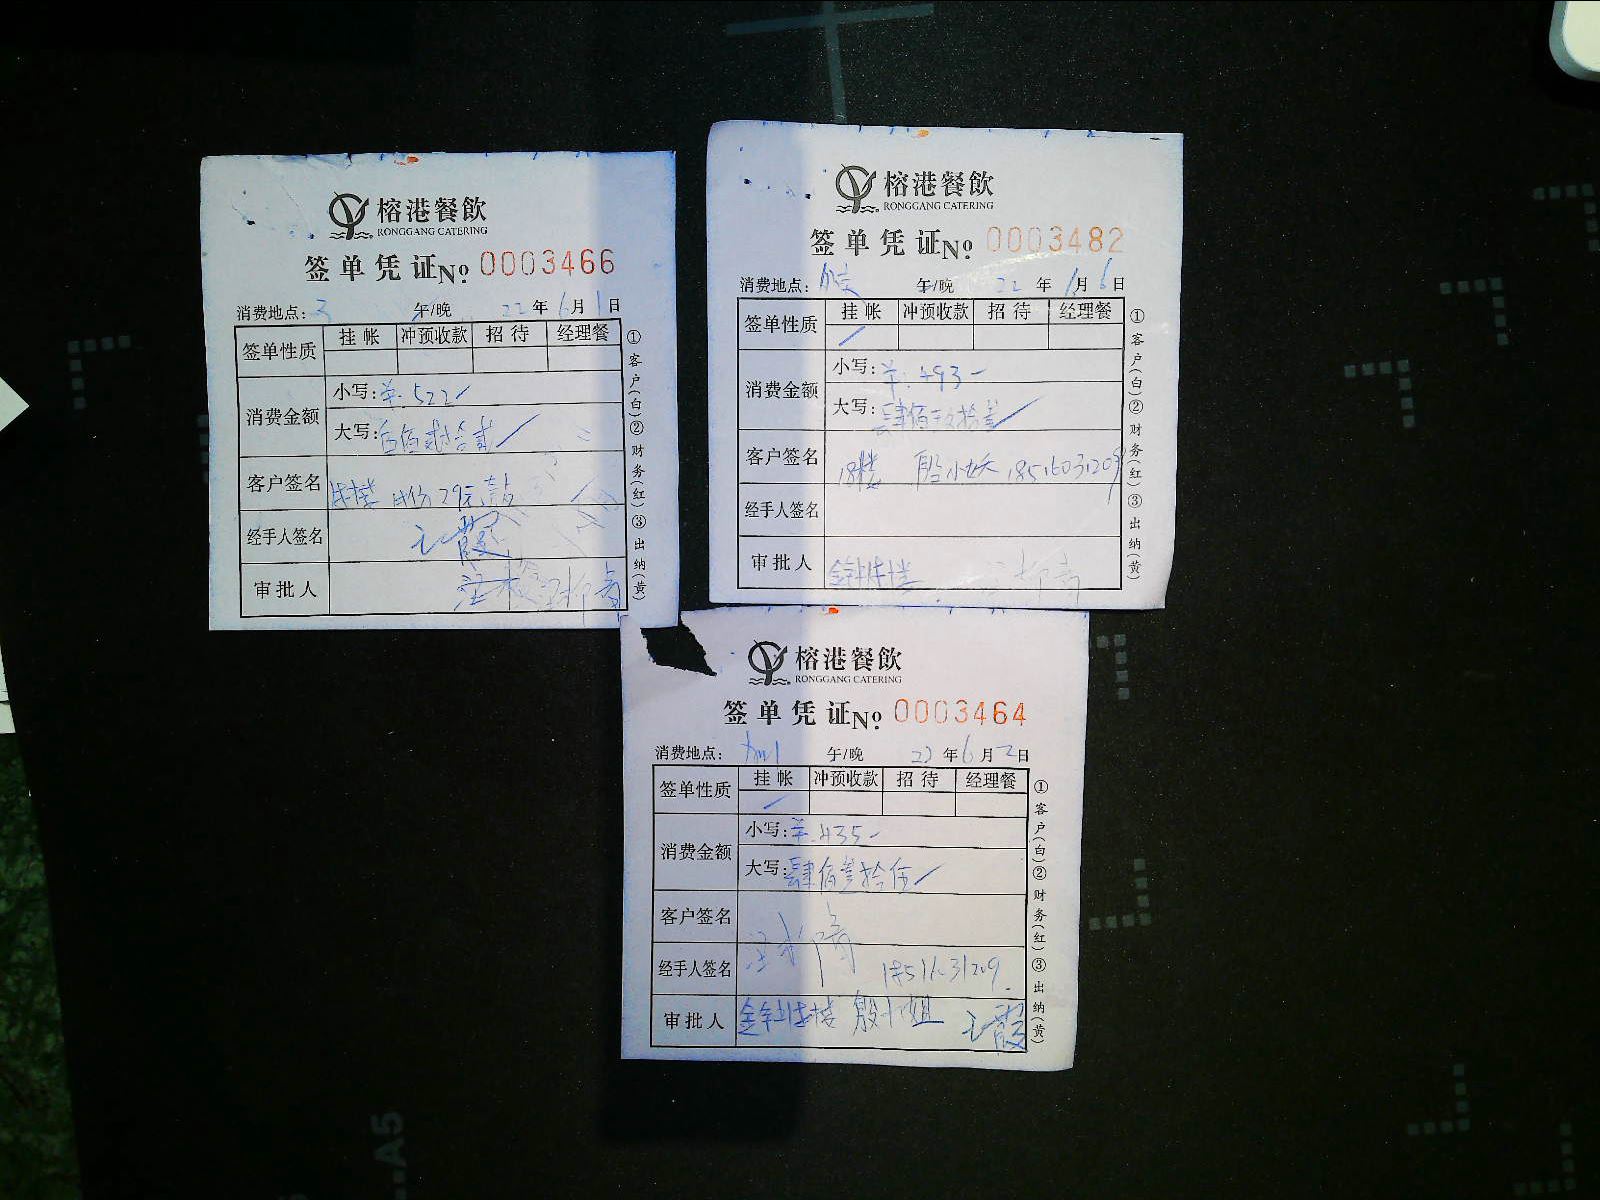 榕港餐飲
RONGGANG CATERING
签单凭证 No 0003466
消费地点: 午/晚 22年6月1日
签单性质 挂帐 冲预收款 招待 经理餐
消费金额 小写: 522
大写: 伍佰贰拾贰
客户签名 18楼 29元
经手人签名
审批人
①客户(白)②财务(红)③出纳(黄)
榕港餐飲
RONGGANG CATERING
签单凭证 No 0003482
消费地点: 午/晚 22年 月6日
签单性质 挂帐 冲预收款 招待 经理餐
消费金额 小写: 493
大写: 肆佰玖拾叁
客户签名 18楼 殷小姐
经手人签名
审批人
①客户(白)②财务(红)③出纳(黄)
榕港餐飲
RONGGANG CATERING
签单凭证 No 0003464
消费地点: 午/晚 22年6月2日
签单性质 挂帐 冲预收款 招待 经理餐
消费金额 小写: 435
大写: 肆佰叁拾伍
客户签名
经手人签名
审批人 殷小姐
①客户(白)②财务(红)③出纳(黄)
A5